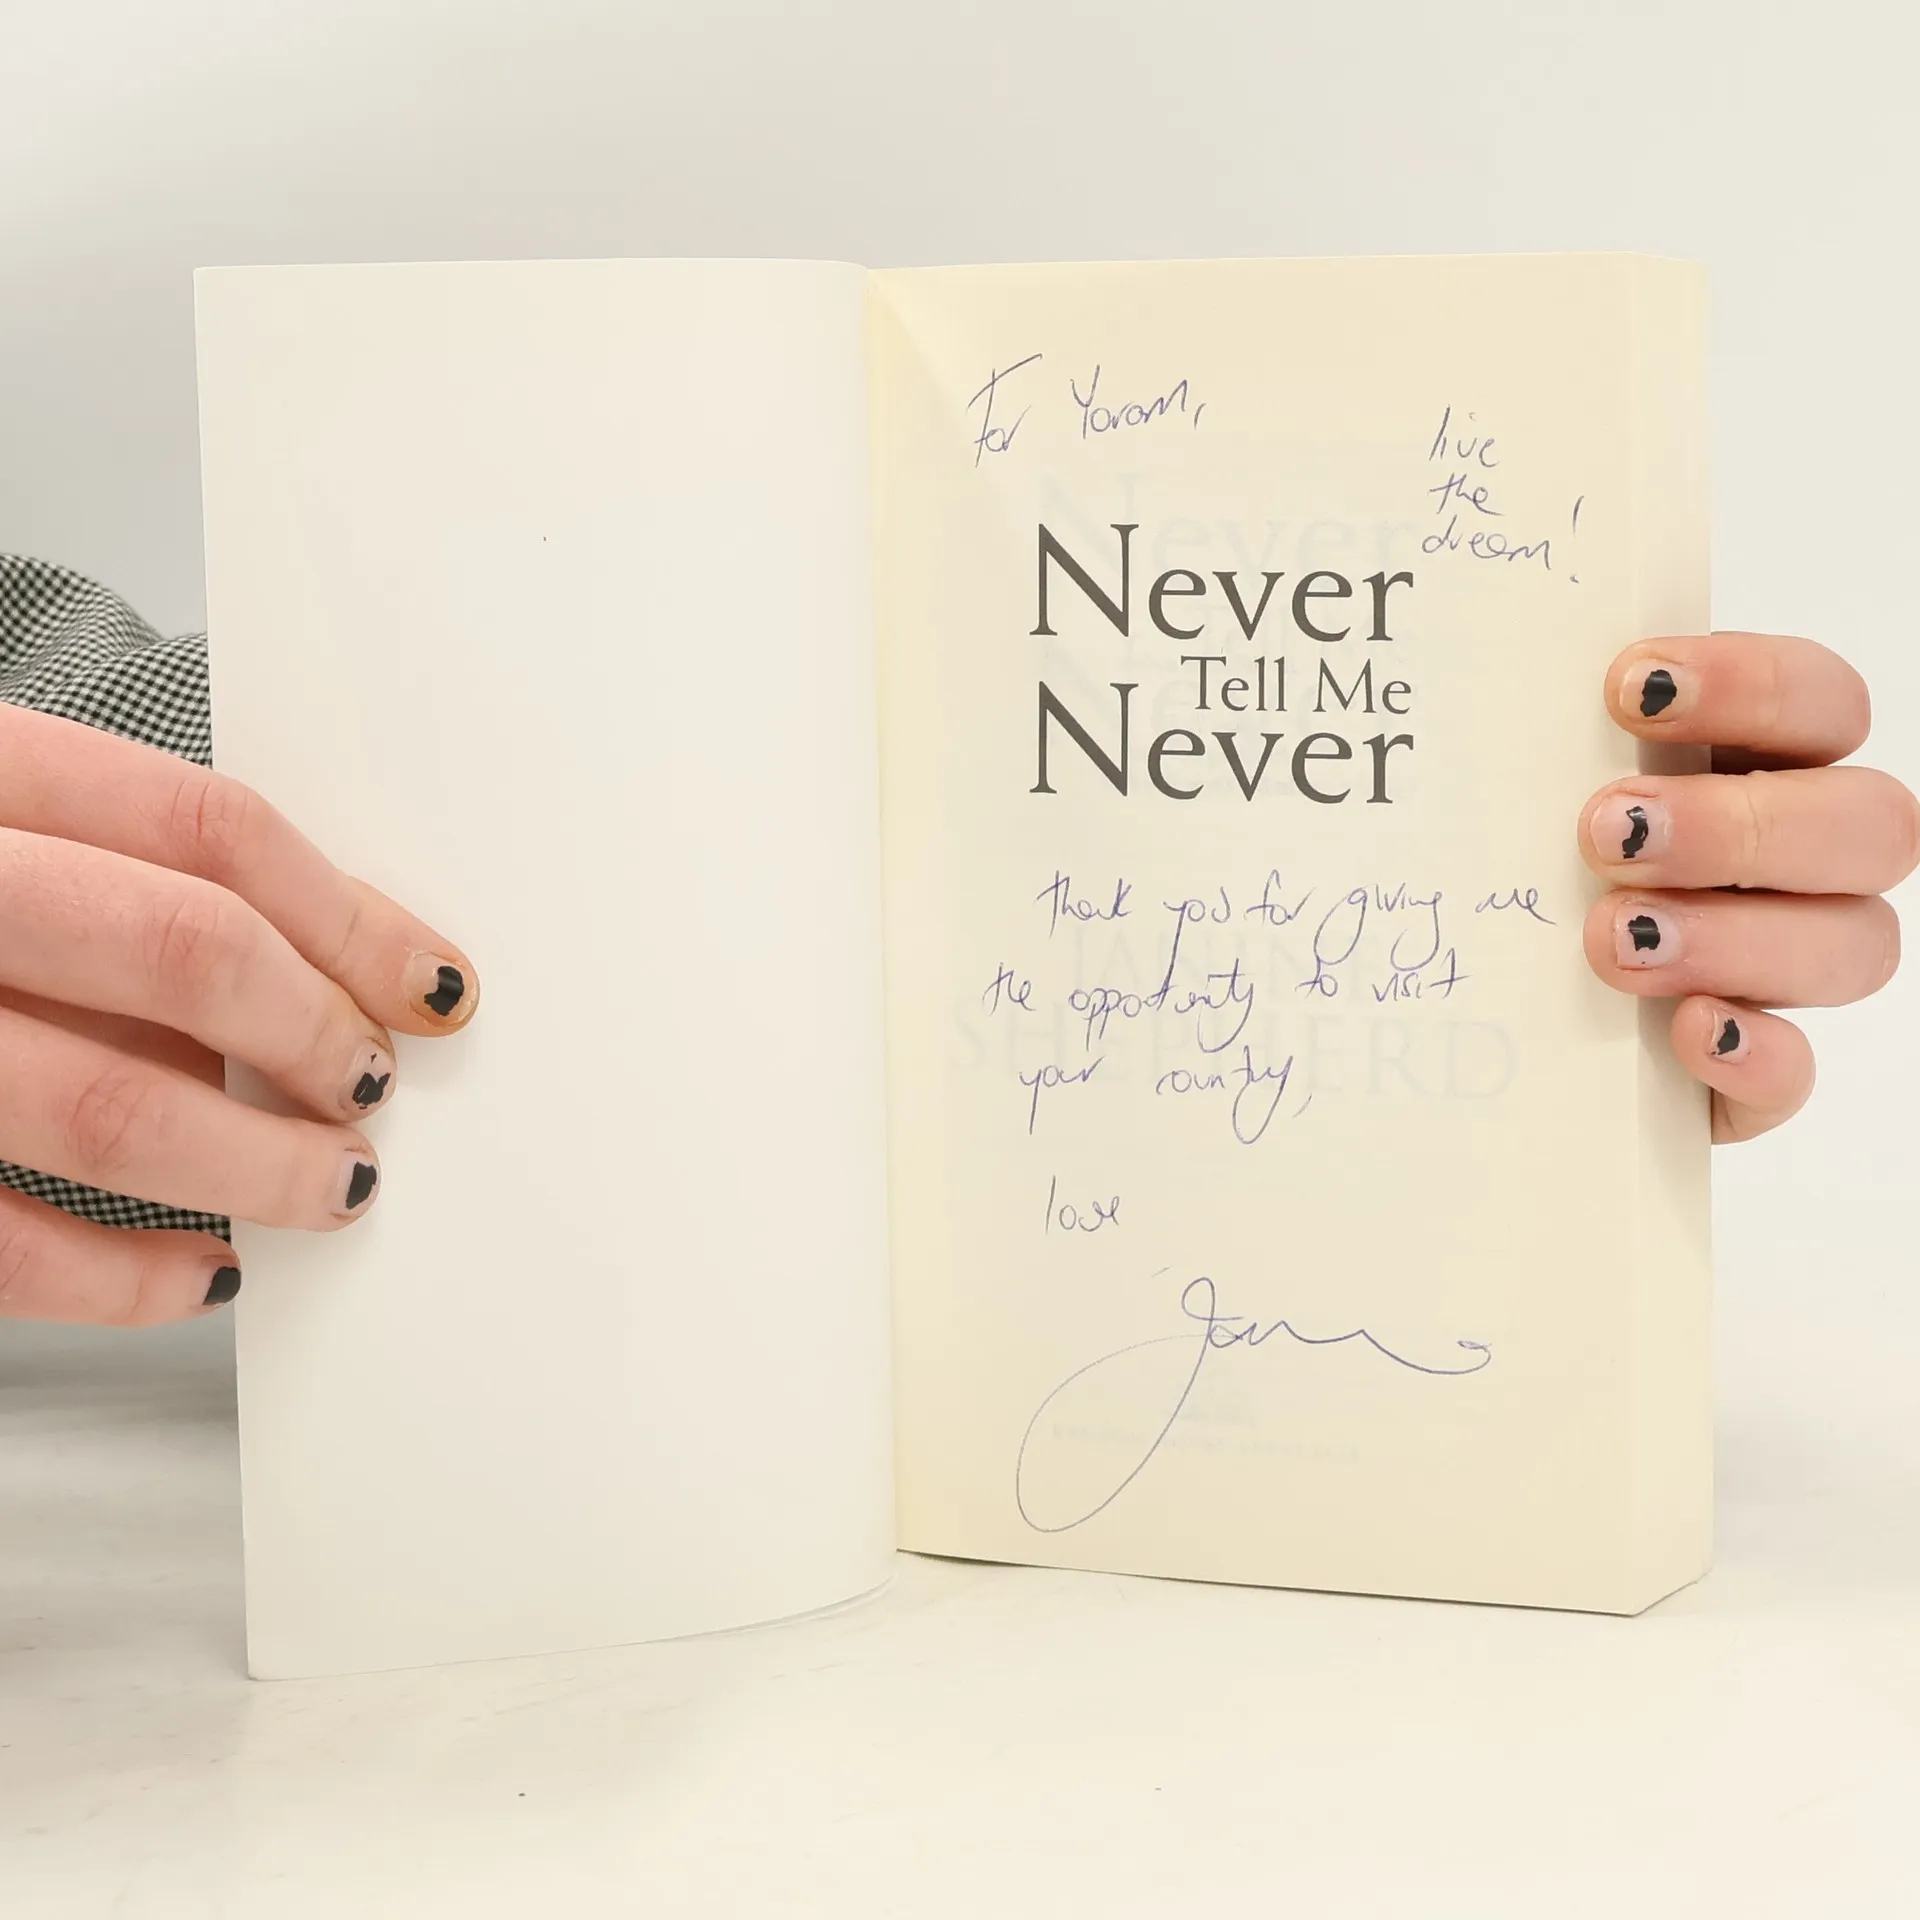 For Yoram,
live
the
dream!
Never
Tell Me
Never
thank you for giving me
the opportunity to visit
your country,
love
JANINE
SHEPHERD